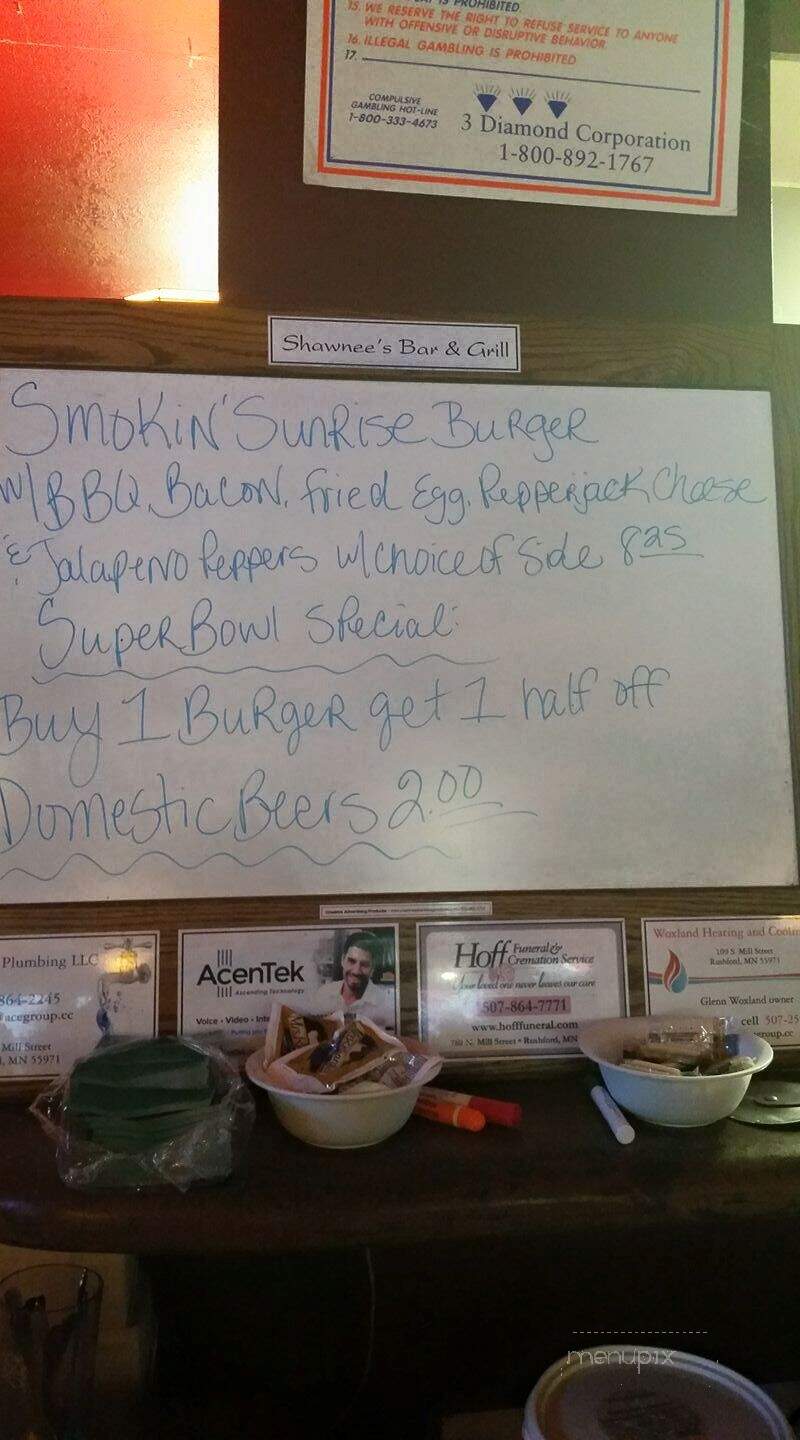 IS PROHIBITED.
15. WE RESERVE THE RIGHT TO REFUSE SERVICE TO ANYONE
WITH OFFENSIVE OR DISRUPTIVE BEHAVIOR
16. ILLEGAL GAMBLING IS PROHIBITED
17.
COMPULSIVE
GAMBLING HOT-LINE
1-800-333-4673
3 Diamond Corporation
1-800-892-1767
Shawnee's Bar & Grill
Smokin' Sunrise Burger
w/ BBQ, Bacon, fried Egg, Pepperjack Cheese
& Jalapeno Peppers w/ choice of Side 8.25
Super Bowl Special:
Buy 1 Burger get 1 half off
Domestic Beers 2.00
Plumbing LLC
864-2245
acegroup.cc
Mill Street
MN 55971
AcenTek
Ascending Technology
Voice • Video • Inte
Hoff Funeral &
Cremation Service
Your loved one never leaves our care
507-864-7771
www.hofffuneral.com
N. Mill Street • Rushford, MN
Woxland Heating and Cooling
109 S. Mill Street
Rushford, MN 55971
Glenn Woxland owner
cell 507-25
group.cc
menupix